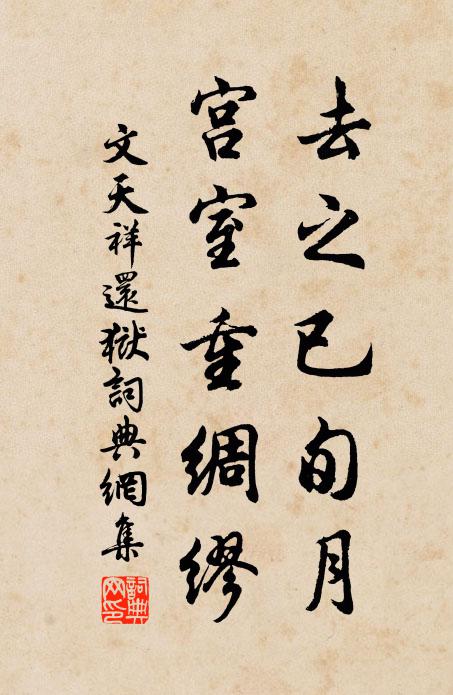 去之已旬月
宫室重綢繆
文天祥還獄詞典網集
詞典
网印